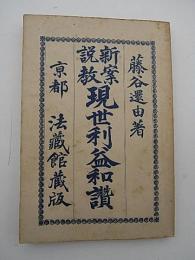 藤谷還由著
新案
説教
現世利益和讃
京都 法藏館藏版